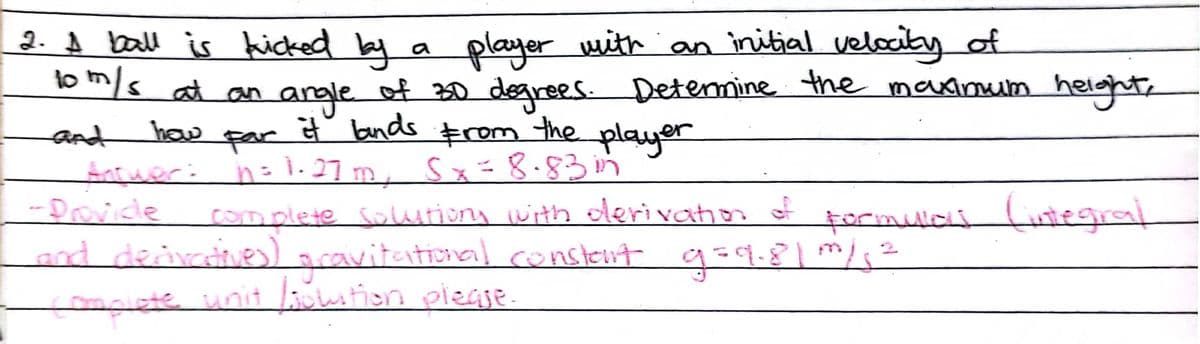 2. A ball is kicked by a player with an initial velocity of
10 m/s at an angle of 30 degrees. Determine the maximum height,
and how far it lands from the player
Answer: h = 1.27 m, Sx = 8.83 m
-Provide complete solutions with derivation of formulas (integral
and derivatives) gravitational constant g = 9.81 m/s²
complete unit /solution please.